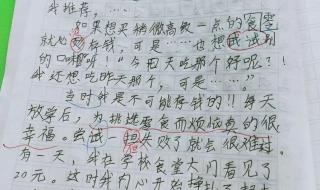 我推荐，……
如果想买稍微高敬一点的食零
就必须存钱，可是……也想试试别
的口味呀！"今天吃那个好呢？！
我还想吃昨天那个，可是……"
当时我是不可能存钱的！！每天
放学后，为挑选零食而烦恼真的很
幸福。尝试，但失败了就会很难过
有一天，我在学校食堂大门看见了
20元。这时我内心开始挣扎